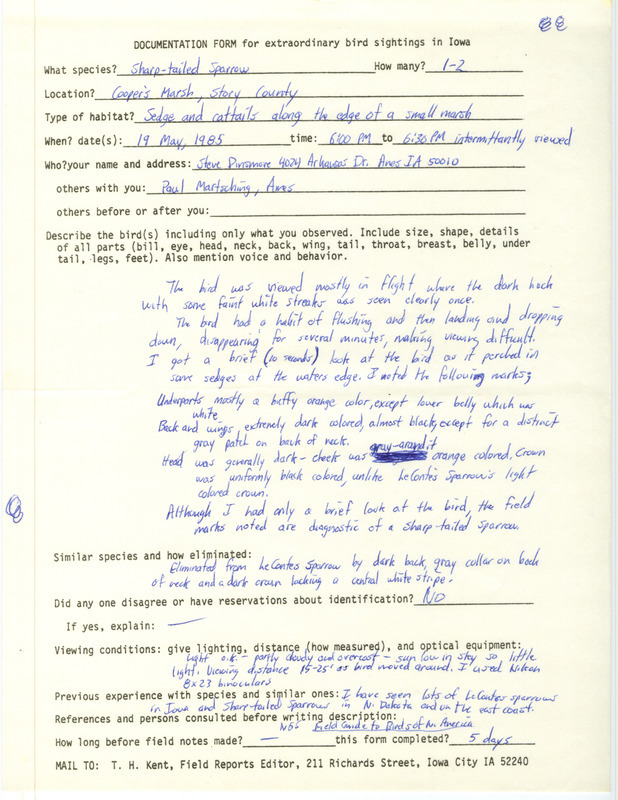 DOCUMENTATION FORM for extraordinary bird sightings in Iowa
What species? Sharp-tailed Sparrow How many? 1-2
Location? Cooper's Marsh, Story County
Type of habitat? Sedge and cattails along the edge of a small marsh
When? date(s): 19 May, 1985 time: 6:00 PM to 6:30 PM intermittantly viewed
Who?your name and address: Steve Dinsmore 4024 Arkansas Dr. Ames IA 50010
others with you: Paul Martsching, Ames
others before or after you:
Describe the bird(s) including only what you observed. Include size, shape, details
of all parts (bill, eye, head, neck, back, wing, tail, throat, breast, belly, under
tail, legs, feet). Also mention voice and behavior.
The bird was viewed mostly in flight where the dark back
with some faint white streaks was seen clearly once.
The bird had a habit of flushing and then landing and dropping
down, disappearing for several minutes, making viewing difficult.
I got a brief (10 seconds) look at the bird as it perched in
some sedges at the waters edge. I noted the following marks;
Underparts mostly a buffy orange color, except lower belly which was
white.
Back and wings extremely dark colored, almost black, except for a distinct
gray patch on back of neck.
Head was generally dark - cheek was gray-around it orange colored. Crown
was uniformly black colored, unlike LeConte's Sparrow's light
colored crown.
Although I had only a brief look at the bird, the field
marks noted are diagnostic of a Sharp-tailed Sparrow.
Similar species and how eliminated:
Eliminated from LeContes Sparrow by dark back, gray collar on back
of neck and a dark crown lacking a central white stripe.
Did any one disagree or have reservations about identification? NO
If yes, explain: —
Viewing conditions: give lighting, distance (how measured), and optical equipment:
Light o.k. - partly cloudy and overcast - sun low in sky so little
light. Viewing distance 15-25' as bird moved around. I used Nikon
8x23 binoculars
Previous experience with species and similar ones: I have seen lots of LeContes sparrows
in Iowa and Sharp-tailed Sparrows in N. Dakota and on the east coast.
References and persons consulted before writing description:
NGS Field Guide to Birds of N. America
How long before field notes made? — this form completed? 5 days
MAIL TO: T. H. Kent, Field Reports Editor, 211 Richards Street, Iowa City IA 52240